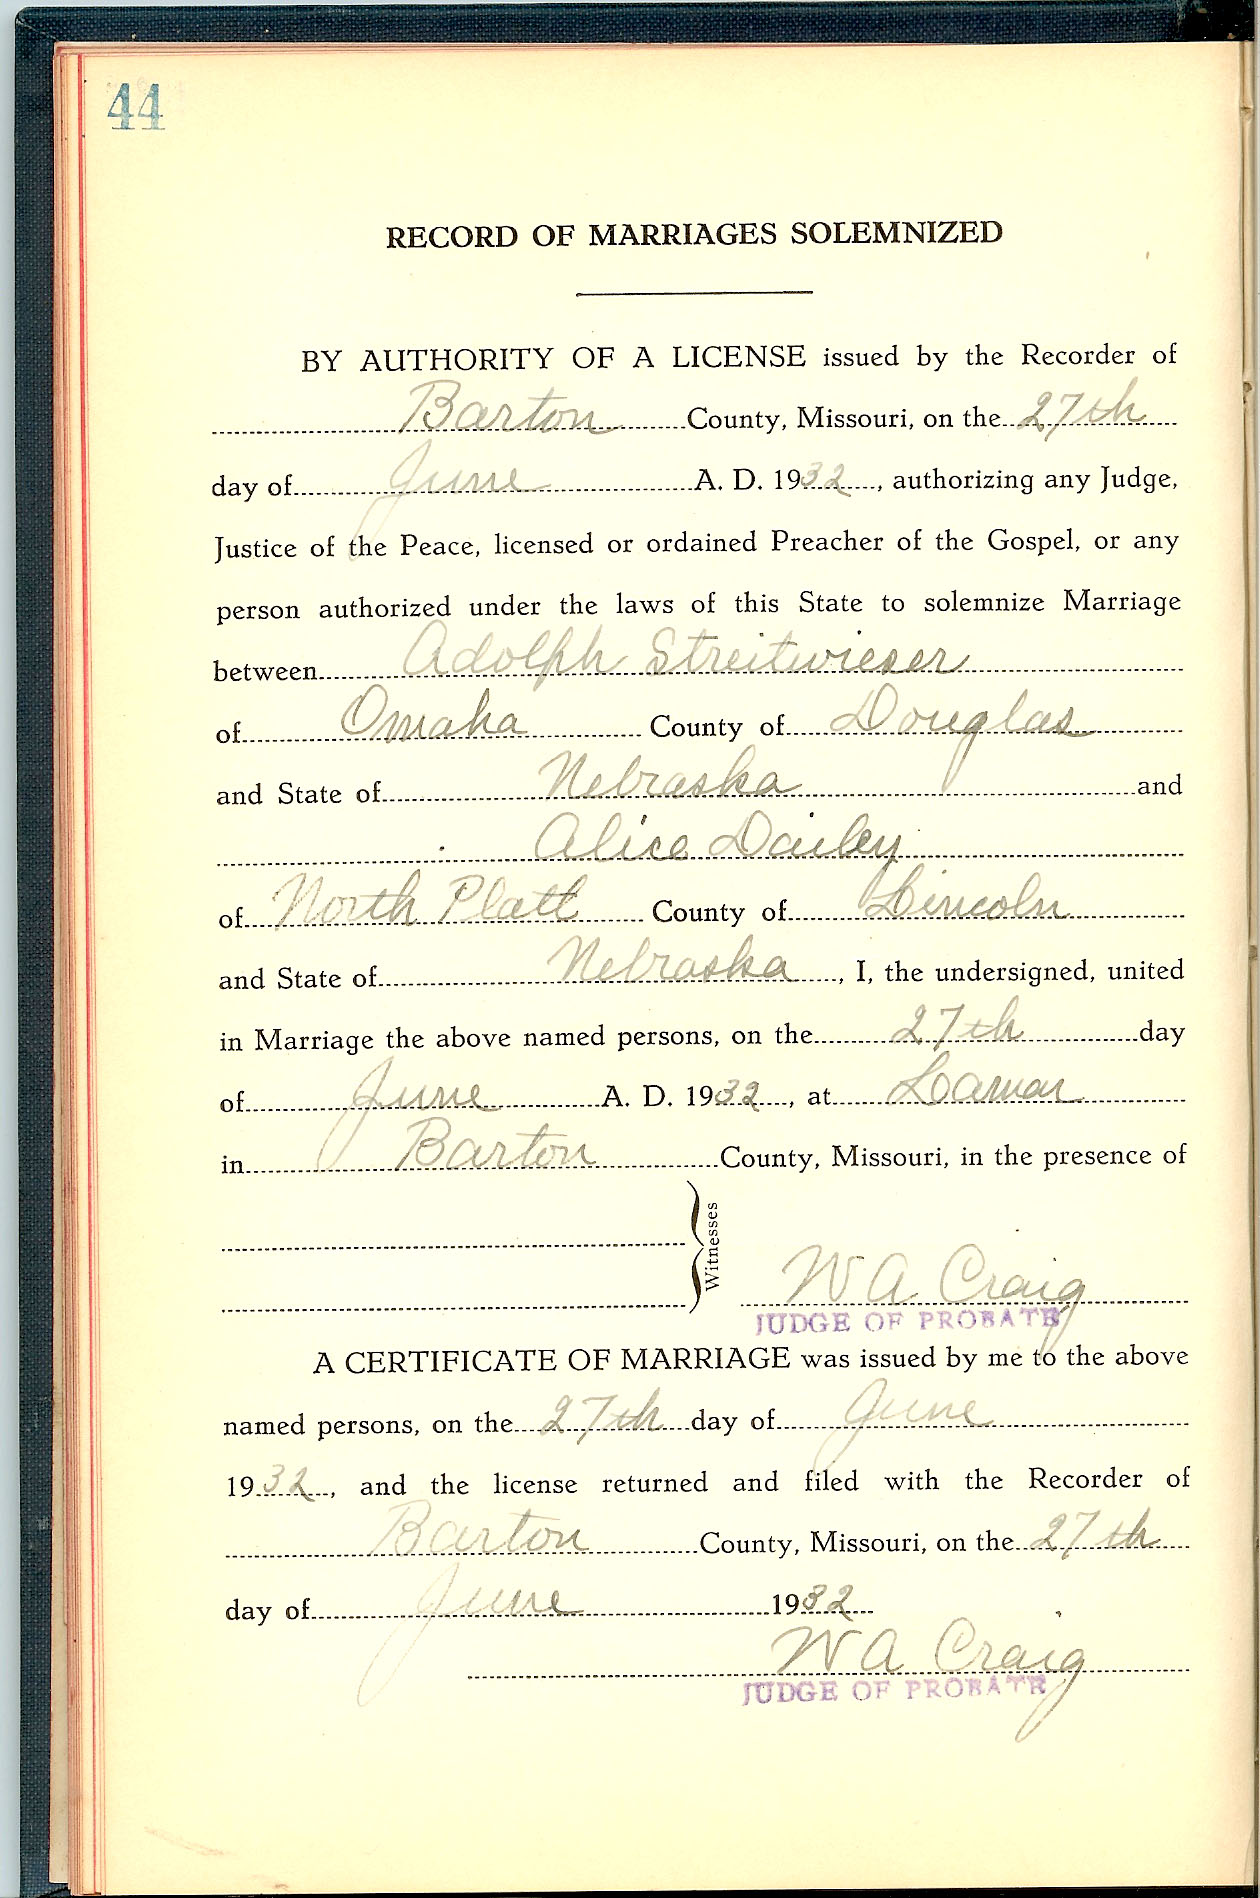 44
RECORD OF MARRIAGES SOLEMNIZED
BY AUTHORITY OF A LICENSE issued by the Recorder of
Barton County, Missouri, on the 27th
day of June A. D. 1932, authorizing any Judge,
Justice of the Peace, licensed or ordained Preacher of the Gospel, or any
person authorized under the laws of this State to solemnize Marriage
between Adolph Streitwieser
of Omaha County of Douglas
and State of Nebraska and
Alice Dailey
of North Platt County of Lincoln
and State of Nebraska, I, the undersigned, united
in Marriage the above named persons, on the 27th day
of June A. D. 1932, at Lamar
in Barton County, Missouri, in the presence of
Witnesses
W A Craig
JUDGE OF PROBATE
A CERTIFICATE OF MARRIAGE was issued by me to the above
named persons, on the 27th day of June
1932, and the license returned and filed with the Recorder of
Barton County, Missouri, on the 27th
day of June 1932
W A Craig
JUDGE OF PROBATE